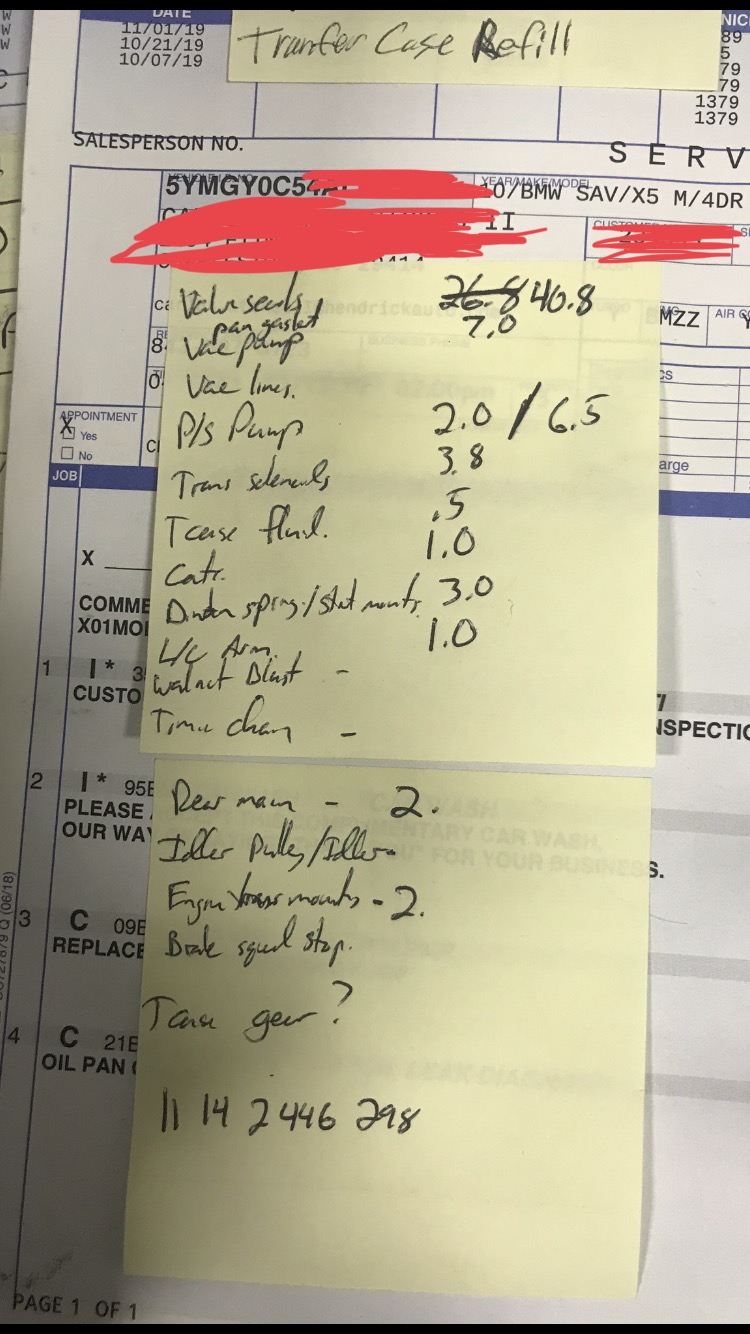 DATE
11/01/19
10/21/19
10/07/19
Tranfer Case Refill
NIC
89
5
79
79
1379
1379
SALESPERSON NO.
S E R V
5YMGY0C54
YEAR/MAKE/MODEL
10/BMW SAV/X5 M/4DR
II
Valve seals 26.8 40.8
pan gasket 7.0
Vac pump
Vac lines.
P/S Pump 2.0 / 6.5
Trans solenoids 3.8
Tcase fluid. .5
1.0
spring/strut mounts 3.0
L/C Arm. 1.0
Walnut Blast -
Timin chain -
MZZ
AIR CO
APPOINTMENT
X Yes
No
arge
JOB
X
COMME
X01MO
1 I* 3
CUSTO
NSPECTIO
2 I* 95E
PLEASE
OUR WA
CAR WASH
CAR WASH,
FOR YOUR BUSINESS.
Rear main - 2.
Idler Pulley/Idler-
Engine/trans mounts - 2.
Brake squeal stop.
Tcase gear?
11 14 2 446 298
3 C 09E
REPLACE
4 C 21E
OIL PAN
Q (06/18)
PAGE 1 OF 1